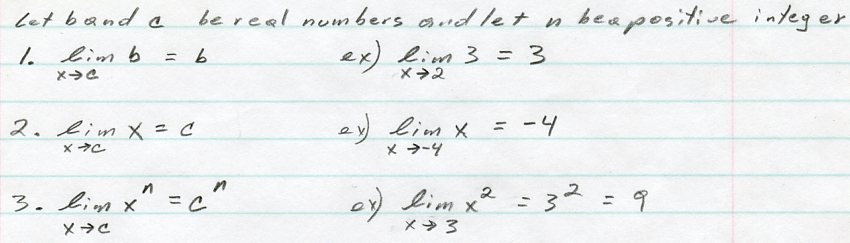 Let b and c be real numbers and let n be a positive integer
1. lim b = b ex) lim 3 = 3
x→c x→2
2. lim x = c ex) lim x = -4
x→c x→-4
3. lim xⁿ = cⁿ ex) lim x² = 3² = 9
x→c x→3